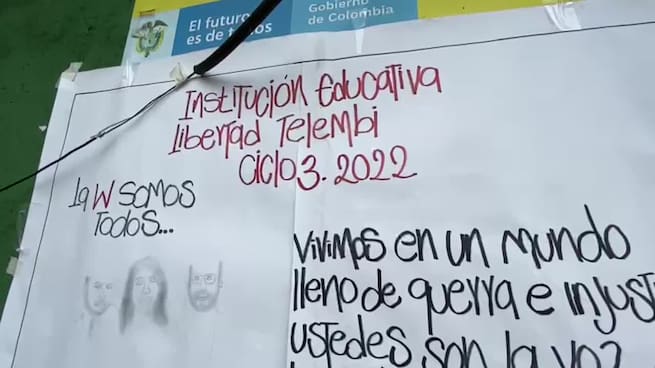 El futuro
es de todos
Gobierno
de Colombia
Institución Educativa
libertad Telembi
Ciclo 3. 2022
la W somos
Todos...
Vivimos en un mundo
lleno de guerra e injust
ustedes son la voz